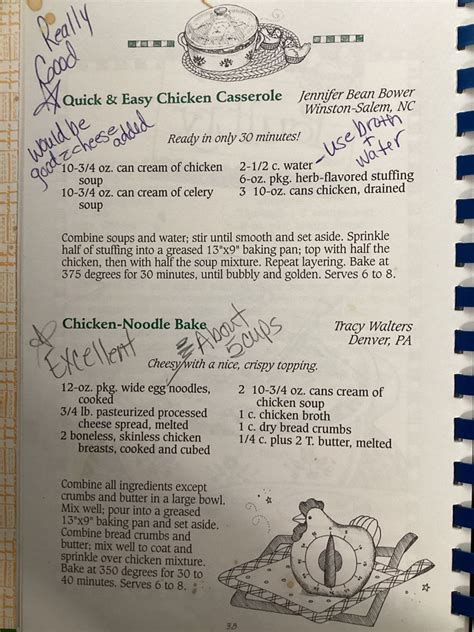 Really
Good
Quick & Easy Chicken Casserole
Jennifer Bean Bower
Winston-Salem, NC
would be
good c cheese added
Ready in only 30 minutes!
- use broth
+
water
10-3/4 oz. can cream of chicken
soup
10-3/4 oz. can cream of celery
soup
2-1/2 c. water
6-oz. pkg. herb-flavored stuffing
3 10-oz. cans chicken, drained
Combine soups and water; stir until smooth and set aside. Sprinkle
half of stuffing into a greased 13"x9" baking pan; top with half the
chicken, then with half the soup mixture. Repeat layering. Bake at
375 degrees for 30 minutes, until bubbly and golden. Serves 6 to 8.
Chicken-Noodle Bake
Tracy Walters
Denver, PA
Excellent
About
5 cups
Cheesy with a nice, crispy topping.
12-oz. pkg. wide egg noodles,
cooked
3/4 lb. pasteurized processed
cheese spread, melted
2 boneless, skinless chicken
breasts, cooked and cubed
2 10-3/4 oz. cans cream of
chicken soup
1 c. chicken broth
1 c. dry bread crumbs
1/4 c. plus 2 T. butter, melted
Combine all ingredients except
crumbs and butter in a large bowl.
Mix well; pour into a greased
13"x9" baking pan and set aside.
Combine bread crumbs and
butter; mix well to coat and
sprinkle over chicken mixture.
Bake at 350 degrees for 30 to
40 minutes. Serves 6 to 8.
38